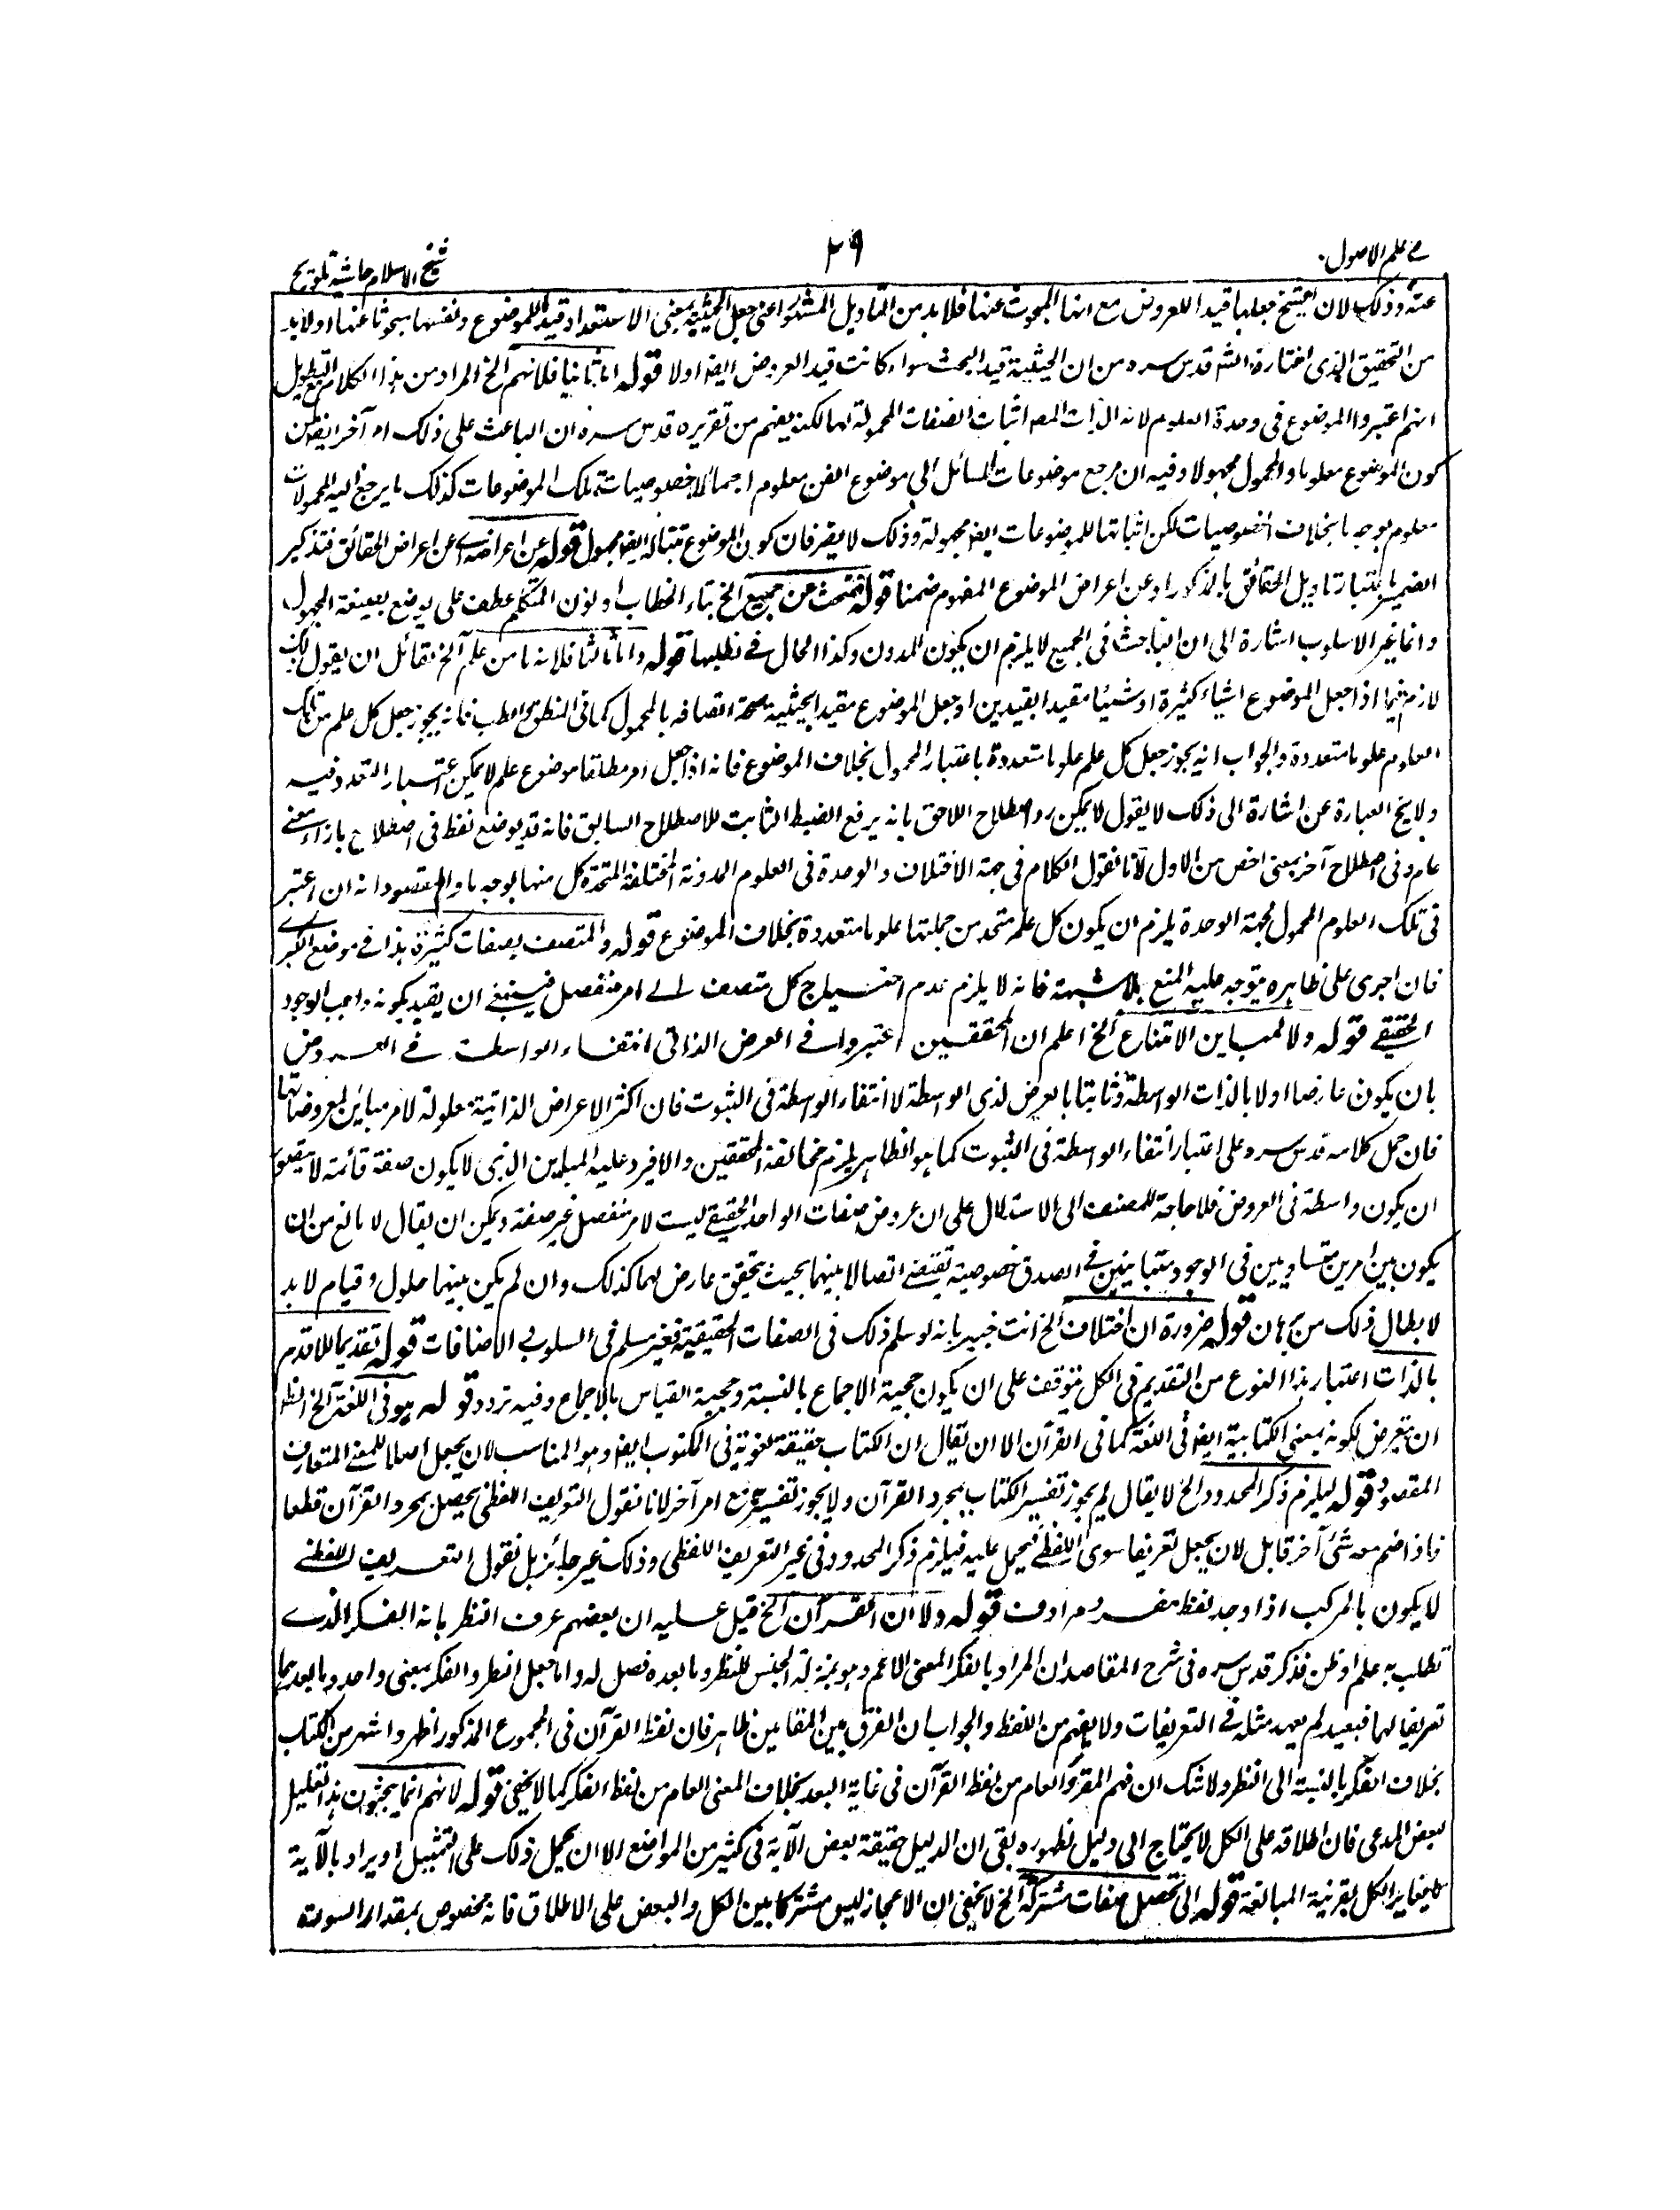 في علم الاصول
٢٩
شيخ الاسلام حاشية تلويح
عنه وذلك لان الشيخ جعلها قيدا للعروض مع انها المبحوث عنها فلا بد من التاويل المشهور اعنى جعل الحيثية بمعنى الاستعداد قيدا للموضوع ونفسها مبحوثا عنها او لا بد
من التحقيق الذى اختاره الش قدس سره من ان الحيثية قيد البحث سواء كانت قيد العروض ايضا اولا قوله اما ثانيا فلانهم الخ المراد من هذا الكلام مع التطويل
انهم اعتبروا الموضوع فى وحدة العلوم لانه الذات المعه اثبات الصفات المحمولة لها لكنه يفهم من تقريره قدس سره ان الباعث على ذلك امر آخر ايضا من
كون الموضوع معلوما والمحمول مجهولا وفيه ان مرجع موضوعات المسائل الى موضوع الفن معلوم اجمالا لا خصوصيات تلك الموضوعات كذلك ما يرجع اليه المحمولات
معلوم بوجه ما بخلاف الخصوصيات لكن اثباتها للموضوعات ايضا مجهولة وذلك لا يضر فان كون الموضوع تبناله ايضا مجهول قوله عن اعراضه اى عن اعراض الحقائق فتذكير
الضمير باعتبار تاويل الحقائق بالمذكور او عن اعراض الموضوع المفهوم ضمنا قوله فتبحث عن جميع الخ بتاء الخطاب او بنون المتكلم عطف على يوضع بصيغة المجهول
وانما غير الاسلوب اشارة الى ان الباحث فى الجميع لا يلزم ان يكون المدون وكذا الحال فے نطلبها قوله واما ثالثا فلانه ما من علم آلخ لقائل ان يقول ذلك
لازم فيما اذا جعل الموضوع اشياء كثيرة او شيئا مقيدا بقيدين او جعل الموضوع مقيدا بحيثية صحة اتصافه بالمحمول كما فى المنطق والطب فانه يجوز جعل كل علم من تلك
العلوم علوما متعددة والجواب انه يجوز جعل كل علم علوما متعددة باعتبار المحمول بخلاف الموضوع فانه اذا جعل امر مطلقا موضوع علم لا يمكن اعتبار التعدد فيه
ولا يخ العبارة عن اشارة الى ذلك لا يقول لا يمكن رد اصطلاح اللاحق بانه يرفع الضبط الثابت للاصطلاح السابق فانه قد يوضع لفظ فى اصطلاح بازاء معنے
عام وفى اصطلاح آخر بمعنى اخص من الاول لانا نقول الكلام فى جهة الاختلاف والوحدة فى العلوم المدونة المختلفة المتحدة كل منها بوجه ما والمقصود انه ان اعتبر
فى تلك العلوم المحمول لجهة الوحدة يلزم ان يكون كل علم متحد من جملتها علوما متعددة بخلاف الموضوع قوله والمتصف بصفات كثيرة هذا فے موضع الكبرے
فان اجرى على ظاهره يتوجه عليه المنع بلا شبهة فانه لا يلزم عدم احتياج كل متصف الے امر منفصل فينبغے ان يقيد بكونه واجب الوجود
الحقيقے قوله ولا لمباين الامتناع آلخ اعلم ان المحققين اعتبروا فے العرض الذاتى انتفاء الواسطة فے العروض
بان يكون عارضا اولا بالذات الواسطة وثانيا بالعرض لذى الواسطة لا انتفاء الواسطة فى الثبوت فان اكثر الاعراض الذاتية معلولة لامر مباين لمعروضاتها
فان حمل كلامه قدس سره على اعتبار انتفاء الواسطة فى الثبوت كما هو الظاهر يلزم مخالفة المحققين والا فيرد عليه المباين الذى لا يكون صفة قائمة لا يتصور
ان يكون واسطة فى العروض فلا حاجة للمصنف الى الاستدلال على ان عروض صفات الواحد الحقيقے ليست لامر منفصل غير صفة ويمكن ان يقال لا مانع من ان
يكون بين امرين متساويين فى الوجود متباينين فے الصدق خصوصية تقتضے اتصالا بينهما بحيث يتحقق عارض لهما كذلك وان لم يكن بينهما حلول وقيام لا بد
لابطال ذلك من برهان قوله ضرورة ان اختلاف الخ انت خبير بانه لو سلم ذلك فى الصفات الحقيقية فغير مسلم فى السلوب والاضافات قوله تقديما للاقدم
بالذات اعتبار هذا النوع من التقديم فى الكل يتوقف على ان يكون حجية الاجماع بالنسبة وحجية القياس بالاجماع وفيه تردد قوله هو فى اللغة آلخ الظ
ان يتعرض لكونه بمعنى الكتابية ايضا فى اللغة كما فى القرآن الا ان يقال ان الكتاب حقيقة لغوية فى المكتوب ايضا وهو المناسب لان يجعل اصلا للمعنے المتعارف
المقصود قوله ليلزم ذكر المحدود الخ لا يقال لم يجوز تفسير الكتاب بمجرد القرآن ولا يجوز تفسيره مع امر آخر لانا نقول التعريف اللفظى يحصل بمجرد القرآن قطعا
فاذا ضم معه شئ آخر قابل لان يجعل تعريفا سوى اللفظے فيحمل عليه فيلزم ذكر المحدود فى غير التعريف اللفظى وذلك غير جائز بل نقول التعريف اللفظے
لا يكون بالمركب اذا وجد لفظ مفرد مرادف قوله ولا ان القرآن الخ قيل عليه ان بعضهم عرف النظر بانه الفكر الذے
تطلب به علم او ظن فذكر قدس سره فى شرح المقاصد ان المراد بالفكر المعنى الاعم وهو بمنزلة الجنس للنظر وما بعده فصل له واما جعل النظر والفكر بمعنى واحد وما بعدهما
تعريفا لهما فبعيد لم يعهد مثله فے التعريفات ولا يفهم من اللفظ والجواب ان الفرق بين المقامين ظاهر فان لفظ القرآن فى المجموع المذكور اظهر واشهر من الكتاب
بخلاف الفكر بالنسبة الى النظر ولا شك ان فهم المقروء العام من لفظ القرآن فى غاية البعد بخلاف المعنى العام من لفظ الفكر كما لا يخفى قوله لانهم انما يبحثون هذا تعليل
لبعض المدعى فان اطلاقه على الكل لا يحتاج الى دليل لظهوره بقى ان الدليل حقيقة بعض الآية فى كثير من المواضع الا ان يحمل ذلك على التمثيل او يراد بالآية
ما يغاير الكل بقرينة المبالغة قوله الى تحصيل صفات مشتركة الخ لا يخفى ان الاعجاز ليس مشتركا بين الكل والبعض على الاطلاق فانه مخصوص بمقدار السورة